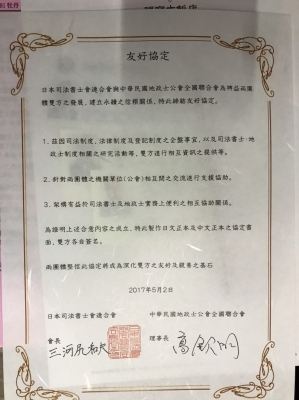 友好協定
日本司法書士會連合會與中華民國地政士公會全國聯合會為將益兩團
體雙方之發展，建立永續之信賴關係，特此締結友好協定。
1．茲因司法制度，法律制度及登記制度之全盤事宜，以及司法書士·地
政士制度相關之研究活動等，雙方進行相互資訊之提供等。
2．針對兩團體之機關單位(公會)相互間之交流進行支援協助。
3．架構有益於司法書士及地政士實務上便利之相互協助關係。
為證明上述合意內容之成立，特此製作日文正本及中文正本之協定書
面，雙方各自簽名。
兩團體堅信此協定將成為深化雙方之友好及親善之基石
2017年5月2日
日本司法書士會連合會 中華民國地政士公會全國聯合會
會長 理事長
三河尻和夫 高欽明